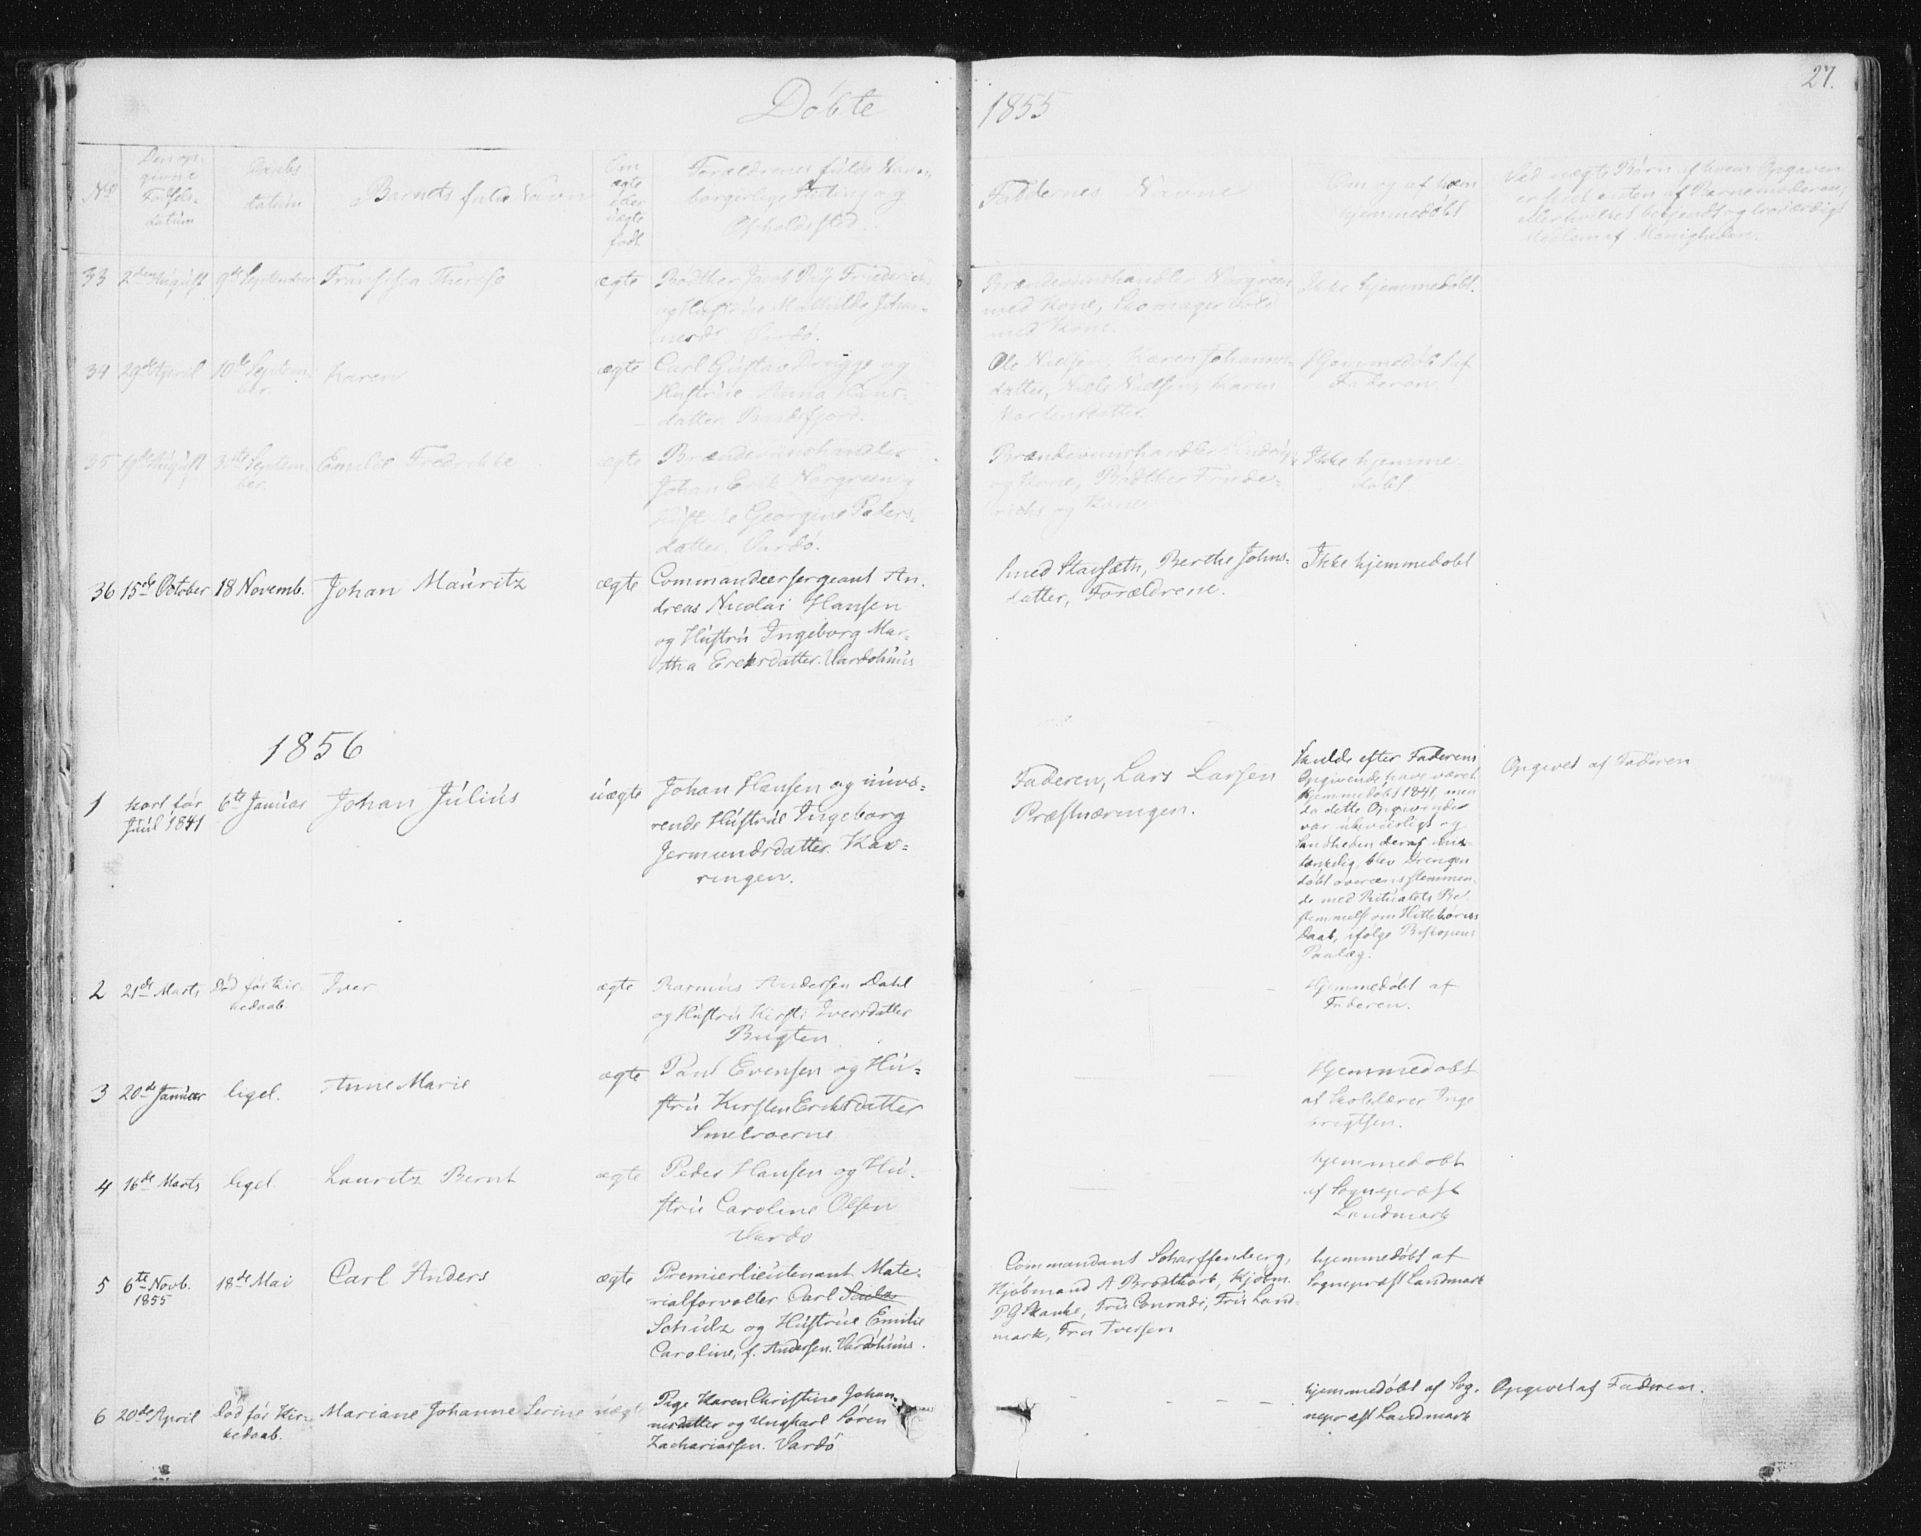 Döbte 1855
27.
No
Den opgivne Fødsels-datum
Daabs datum
Barnets fulde Navn
Om ægte eller uægte født
Forældrenes fulde Navn, borgerlige Stilling og Opholdssted.
Faddernes Navne
Om og af hvem hjemmedøbt
Ved uægte Børn af hvem Opgaven er skeet enten af Barnemoderen, eller hvilket bekjendt og troværdigt Medlem af Menigheden.
33 2den August 9de September Fransisca Therese ægte
og Hustrue Mathilde Johan-
nesd. Vardö.
Brændeviinshandler Norgreen
med Kone, Skomager
med Kone.
Ikke hjemmedöbt.
34 29de April 10de Septem-
ber.
Karen ægte
Carl Gustav og
Hustrue Anna Hans-
datter. Baadsfjord.
Ole Nielsen, Karen Johannes-
datter, Niels Nielsen, Karen
Mortensdatter.
Hjemmedöbt af
Faderen.
35 19de August Septem-
ber.
Emilie Fredrikke ægte
Brændeviinshandler
Johan Erik Norgreen og
Hustrue Georgine Peders-
datter. Vardö.
Brændeviinshandler
og Kone, Bödtker Friede-
richs og Kone
Ikke hjemme-
döbt
36 15de October 18 Novemb. Johan Mauritz ægte
Commandeersergeant An-
dreas Nicolai Hansen
og Hustru Ingeborg Mar-
tha Ericksdatter. Vardöhuus
Smed Stavsæth, Berthe Johns-
datter, Forældrene.
Ikke hjemmedöbt
1856
1 kort før
Juul 1841
6te Januar Johan Július uægte
Johan Hansen og nuvæ-
rende Hustrue Ingeborg
Jermundsdatter. Kav-
ringen.
Faderen, Lars Larsen
Præstnæringen.
Skulde efter Faderens
Opgivende have været
hjemmedöbt 1841, men
da dette Opgivende
var ukviirligt og
Sandheden deraf
tænkelig, blev Drengen
döbt overeensstemmen-
de med Ritualets Be-
stemmelse om Hittebörns
Daab, ifølge Biskopens
Paalæg.
Opgivet af Faderen
2 21de Marts Död før Kir-
kedaab
Iver ægte
Rasmus Andersen Dahl
og Hustru Kirsti Iversdatter
Bugten
Hjemmedöbt af
Faderen.
3 20de Januar ligel. Anne Marie ægte
Paul Evensen og Hu-
stru Kirsten Ericksdatter
Smelroerne
Hjemmedöbt
af Skolelærer Inge
brigtsen.
4 16de Marts ligel. Lauritz Bernt ægte
Peder Hansen og Hu-
stru Caroline Olsen
Vardö
hjemmedöbt
af Sognepræst
Landmark
5 6te Novb.
1855
18de Mai Carl Anders ægte
Premierlieutenant Mate-
rialforvalter Carl
Schulz og Hustrue Emilie
Caroline, f. Andersen. Vardöhuus.
Commandant Scharffenberg,
Kjöbmand A Brodtkorb, Kjöbm.
P G Skanke, Fru Conradi, Fru Land-
mark, Fru Iversen
hjemmedöbt af
Sognepræst Landmark
6 20de April Död før Kir-
kedaab.
Mariane Johanne Serine uægte
Pige Karen Christine Johan-
nesdatter og Ungkarl Sören
Zachariassen. Vardö
hjemmedöbt af Sog-
nepræst Landmark
Opgivet af Faderen.